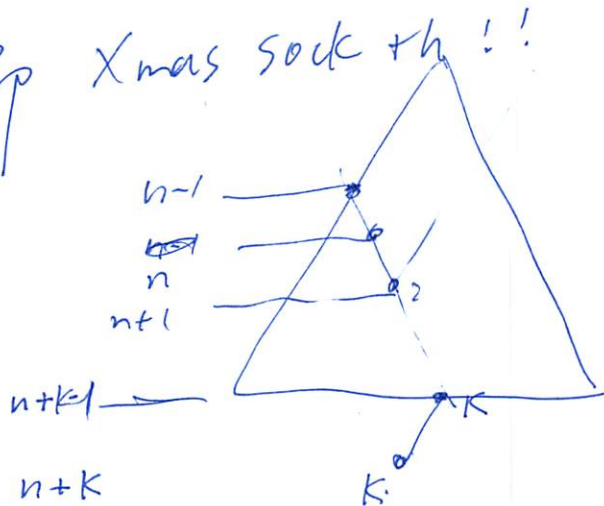 Xmas sock th !!
n-1
n
n+1
2
n+k-1
K
n+k
K.